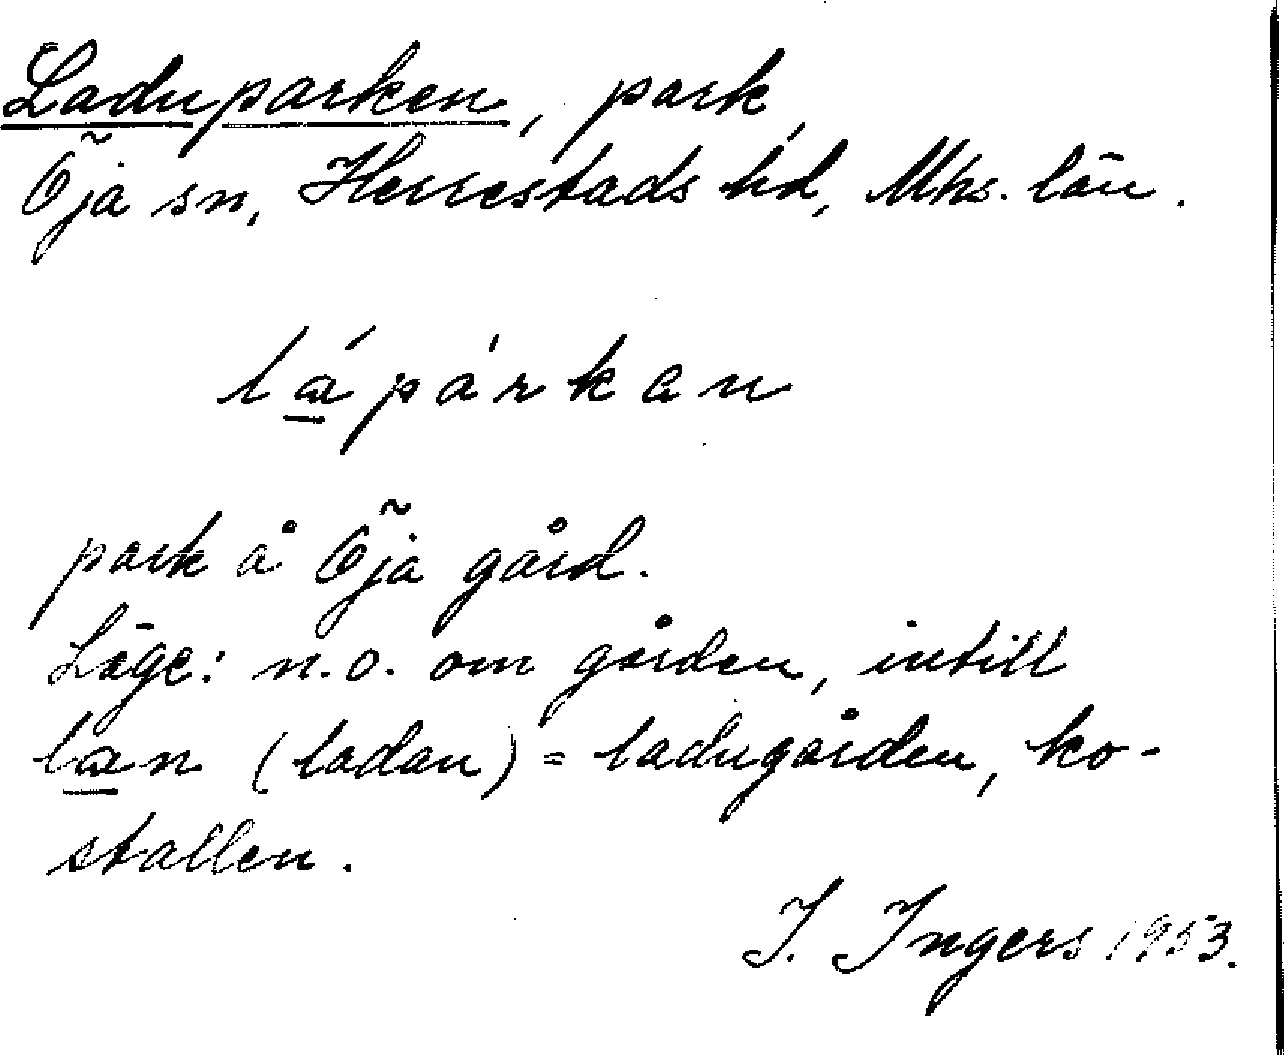 Laduparken, park,
Öja sn, Herrestads hd, Mhs. län.
lápárkan
park å Öja gård.
Läge: n.o. om gården, intill
lan (ladan) = ladugården, ko-
stallen.
I. Ingers 1953.